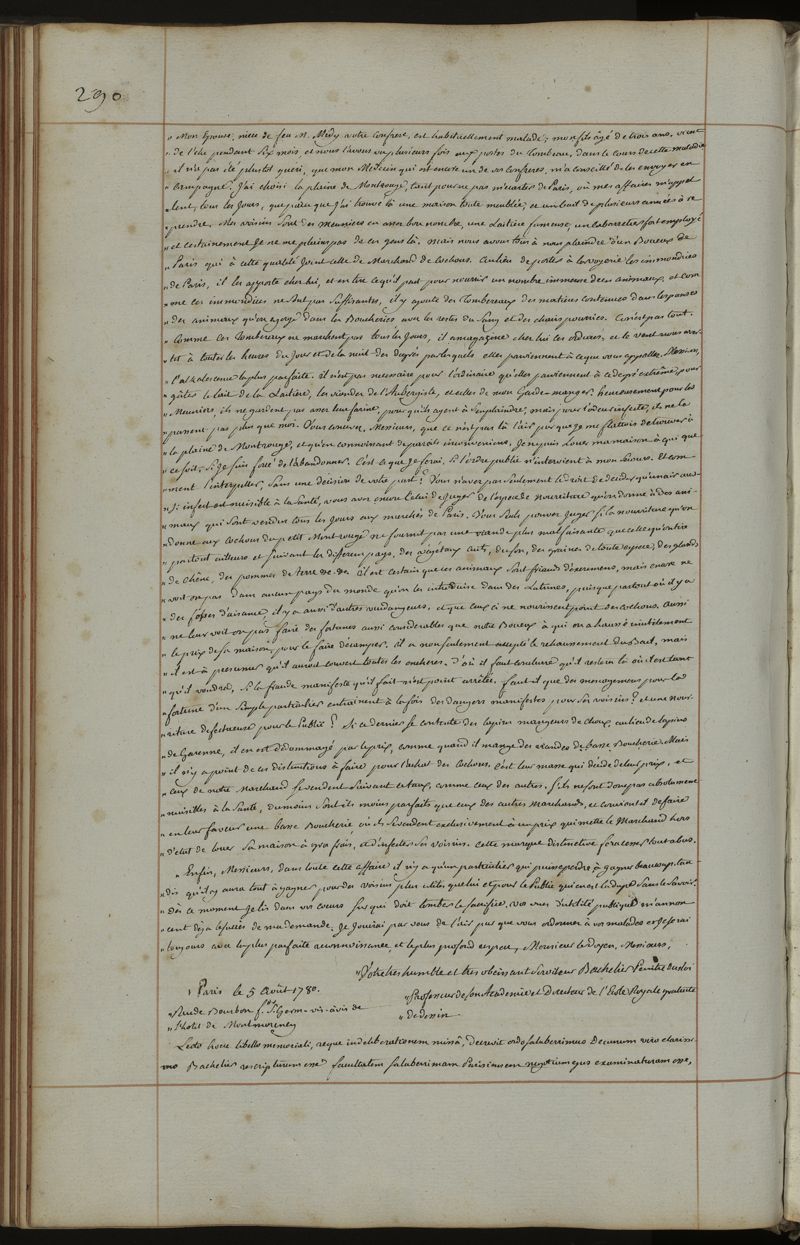 290
" Mon Epouse, niece de feu M. Medy votre Confrere, est habituellement malade; mon fils âgé de trois ans, vient
" de l'etre pendant Six mois, et nous l'avons vu plusieurs fois aux portes du Tombeau, dans le cours de cette maladie
" il n'a pas été plustot gueri, que mon Medecin qui est encore un de vos Confreres, m'a conseillé de les envoyer en
" Campagne. J'ai choisi la plaine de Montrouge, tant pour ne pas m'écarter de Paris, où mes affaires m'appel
" lent, tous les Jours, que parce que J'ai trouvé là une maison toute meublée, et un bail de plusieurs années à re
" prendre. Mes voisins sont des Meuniers en assez bon nombre, une Laitiere fameuse, un Cabaretier fort employé
" et certainement Je ne me plains pas de ces gens là. Mais nous avons tous à nous plaindre d'un Boueux de
" Paris qui à cette qualité Joint celle de Marchand de Cochons. Au lieu de porter à la voyerie les immondices
" de Paris, il les apporte chez lui, et en tire ce qu'il peut pour nourrir un nombre immense de ces animaux, et com
" me ces immondices ne sont pas suffisantes, il y ajoute des Tombereaux des matieres contenues dans les panses
" des animaux qu'on egorge dans les Boucheries avec les restes du Sang et des chairs pourries. Ce n'est pas tout.
" Comme ces Tombereaux ne marchent pas tous les Jours, il amagazine chez lui ces ordures, et le vent nous aver
" tit à toutes les heures du Jour et de la nuit des degrés par lesquels elles parviennent à ce que vous appellez, Messieurs,
" l'alkalescence la plus parfaite. il n'est pas necessaire pour l'ordinaire qu'elles parviennent à ce degré extrême, pour
" gâter le lait de la Laitiere, les viandes de l'Aubergiste, et celles de mon Garde-manger. heureusement pour les
" Meuniers, ils ne gardent pas assez leur farine, pour qu'ils ayent à s'en plaindre, mais pour l'odeur infecte, ils ne la
" passent pas plus que moi. Vous concevez, Messieurs, que ce n'est pas là l'air pur que Je me flattois de trouver à
" la plaine de Montrouge, et qu'en connoissant de pareils inconveniens, Je ne puis Louer ma maison à qui que
" ce soit, Si Je suis forcé de l'abandonner. C'est ce que Je ferai, Si l'ordre public n'intervient à mon Secours. Et com
" ment l'interpeller, Sans une decision de votre part? Vous n'avez pas seulement le droit de decider qu'un air aus
" si infect est nuisible à la Santé, vous avez encore celui de Juger de l'espece de nourriture qu'on donne à des ani
" maux qui sont vendus tous les Jours aux marchés de Paris. Vous Seuls pouvez Juger si la nourriture qu'on
" donne aux Cochons du petit Montrouge ne fournit pas une viande plus malfaisante que celle qu'on tire
" partout ailleurs et suivant les differens pays, des vegetaux cuits, du son, des graines de toute espece, des glands
" de chêne, des pommes de terre &c &c. il est certain que ces animaux sont friands d'excremens, mais encore ne
" voit on pas dans aucun pays du monde qu'on les introduise dans des Latrines, puisque partout où il y a
" des fosses d'aisance, il y a aussi d'autres vuidangeurs, et que ceux ci ne nourrissent point des Cochons. Aussi
" ne leur voit on pas faire des fortunes aussi considerables que notre Boueux à qui on a haussé inutilement
" le prix de sa maison, pour le faire décamper. il a non seulement accepté le rehaussement du Bail, mais
" il est à presumer qu'il auroit couvert toutes les encheres. D'où il faut conclure qu'il restera là où il est tant
" qu'il voudra, si la fraude manifeste qu'il fait n'est point arrêtée. faut il que des menagemens pour la
" fortune d'un Simple particulier entrainent à la fois des dangers manifestes pour ses voisins? et une nour
" riture defectueuse pour le Public? Si ce dernier se contente des lapins mangeurs de choux, au lieu de lapins
" de Garenne, il en est dédommagé par le prix, comme quand il mange des viandes de basse Boucherie. Mais
" il n'y a point de ces distinctions à faire pour l'achat des Cochons. C'est leur masse qui decide de leur prix, et
" ceux de notre Marchand se vendent suivant ce taux, comme ceux des autres. s'ils ne sont donc pas absolument
" nuisibles à la Santé, du moins sont-ils moins parfaits que ceux des autres Marchands, et convient il de faire
" en leur faveur une basse Boucherie où ils se vendent exclusivement à un prix qui mette le Marchand hors
" d'état de louer sa maison à gros frais, et d'infecter ses voisins. Cette marque distinctive fera cesser tout abus.
" Enfin, Messieurs, dans toute cette affaire il n'y a qu'un particulier qui puisse perdre à gagner beaucoup, tan
" dis qu'il y aura tout à gagner pour des voisins plus utiles que lui et pour le Public qui en est la dupe Sans le Savoir.
" Dès ce moment Je lis dans vos cœurs sur qui doit tomber le Sacrifice. vos vues d'utilité publique m'annon
" cent déja le succès de ma demande. Je Jouirai par vous de l'air pur que vous ordonnez à vos malades et Je serai
" toujours avec la plus parfaite reconnoissance, et le plus profond respect, Monsieur le Doyen, Messieurs,
" Votre tres humble et tres obeissant Serviteur Bachelier Peintre du Roi
" Paris le 5 Août 1780.
" Professeur de son Academie et Directeur de l'Ecole Royale gratuite
" Rue de Bourbon f. St Germ. vis-à-vis de
" de dessin
" l'hotel de Montmorency
Lecto hocce libello memoriali, reque in deliberationem missâ, decrevit ordo Saluberrimus Decanum viro clarissi
mo Bachelier rescripturum esse facultatem Saluberrimam Parisiensem negotium ejus examinaturam esse,